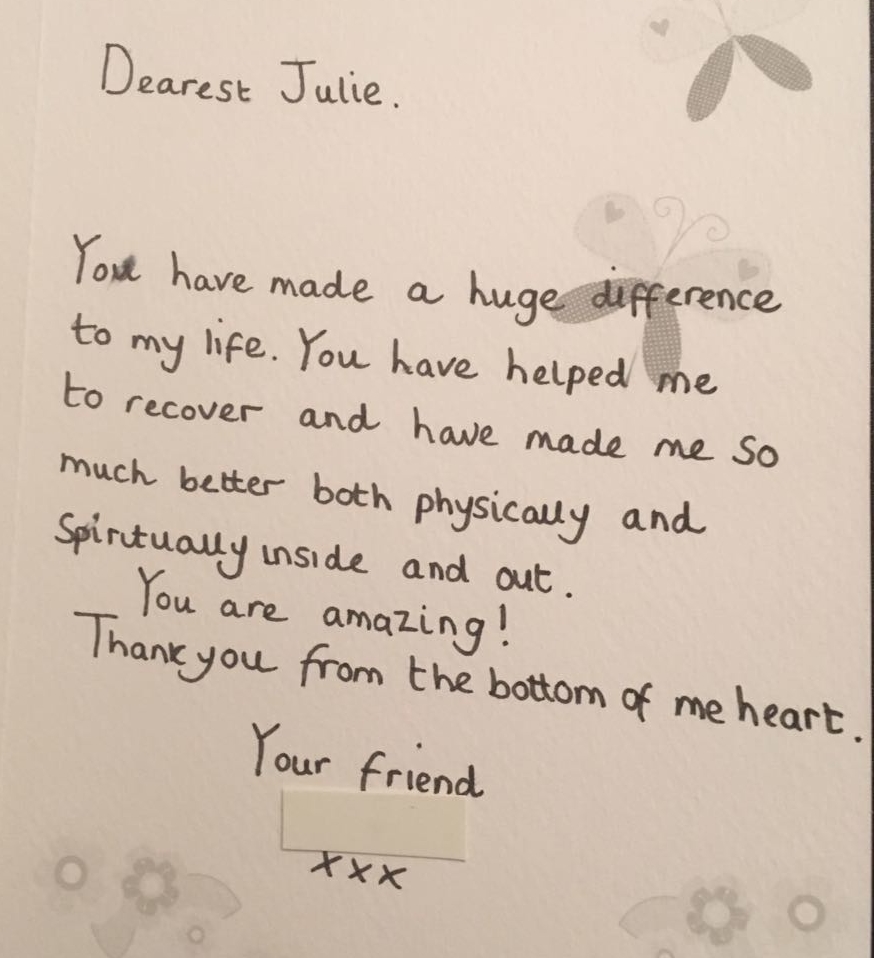 Dearest Julie.
You have made a huge difference
to my life. You have helped me
to recover and have made me so
much better both physically and
Spiritually inside and out.
You are amazing!
Thank you from the bottom of me heart.
Your friend
xxx